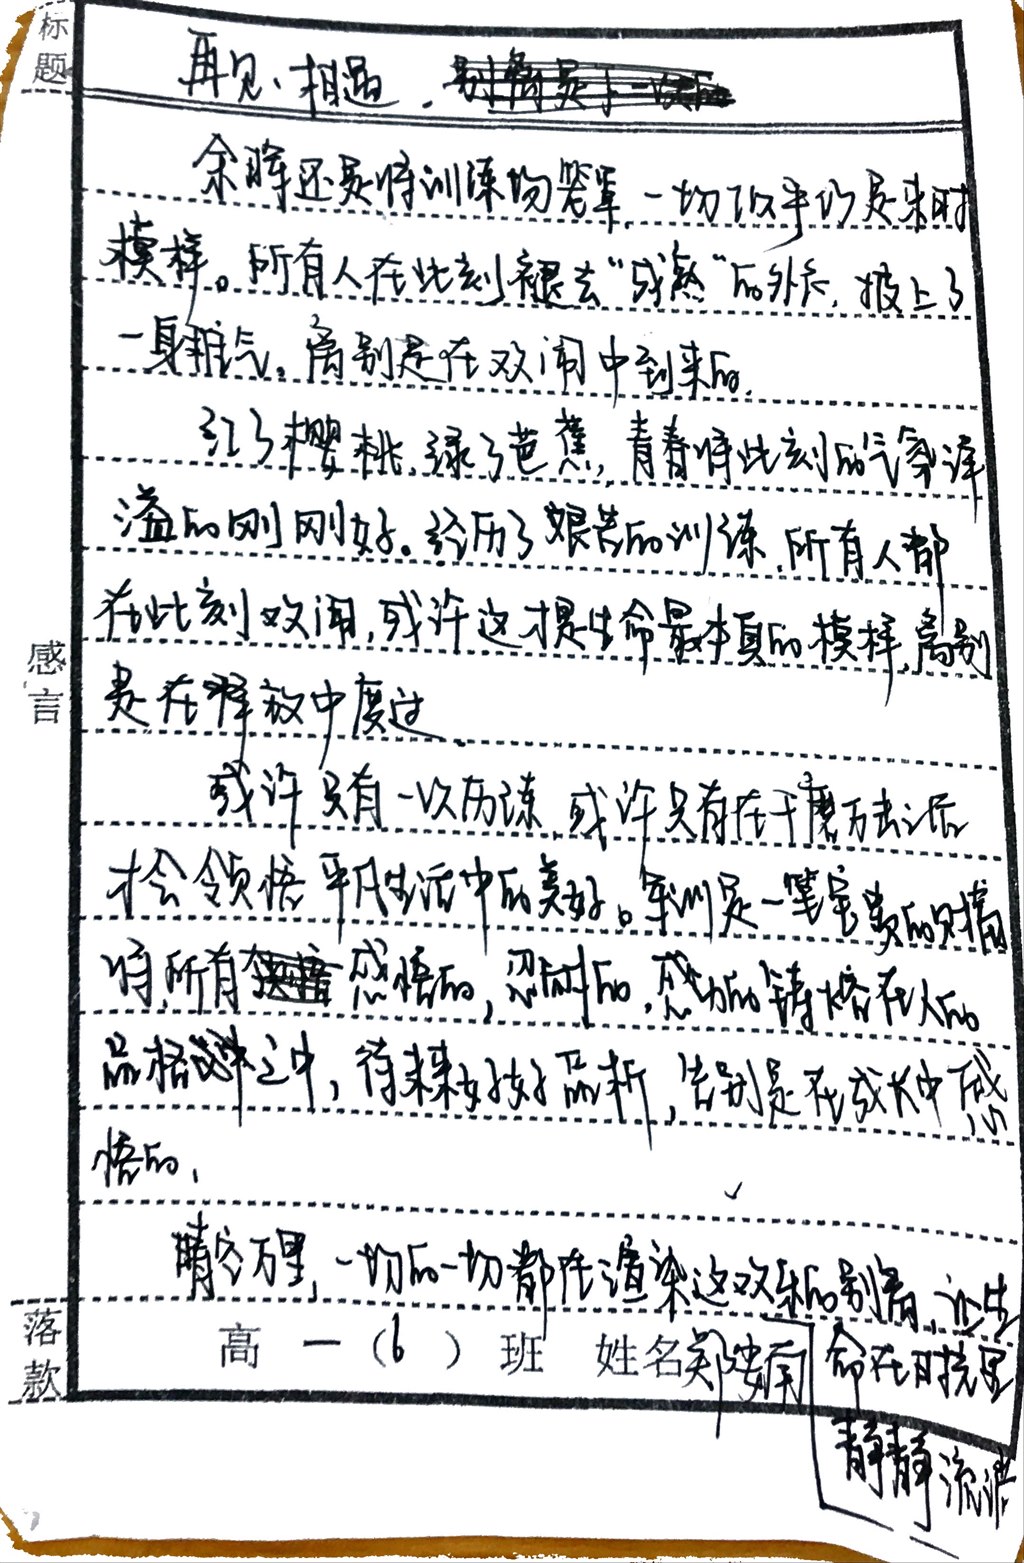 标题
再见、相遇.
余晖还是将训练场笼罩,一切似乎仍是来时
模样。所有人在此刻褪去“成熟”的外衣,披上了
一身脏气。离别是在欢闹中到来的.
红了樱桃,绿了芭蕉,青春将此刻的气氛洋
溢的刚刚好。经历了艰苦的训练,所有人都
在此刻欢闹,或许这才是生命最本真的模样,离别
是在释放中度过.
感言
或许只有一次历练,或许只有在千磨万击之后
才会领悟平凡生活中的美好。军训是一笔宝贵的财富
将所有感悟的,忍耐的,感动的铸熔在人的
品格之中,待未来好好品析,告别是在成长中感
悟的.
晴空万里,一切的一切都在渲染这欢乐的别离,让生
命在时境里
静静流淌
落款
高一(6)班 姓名郑南